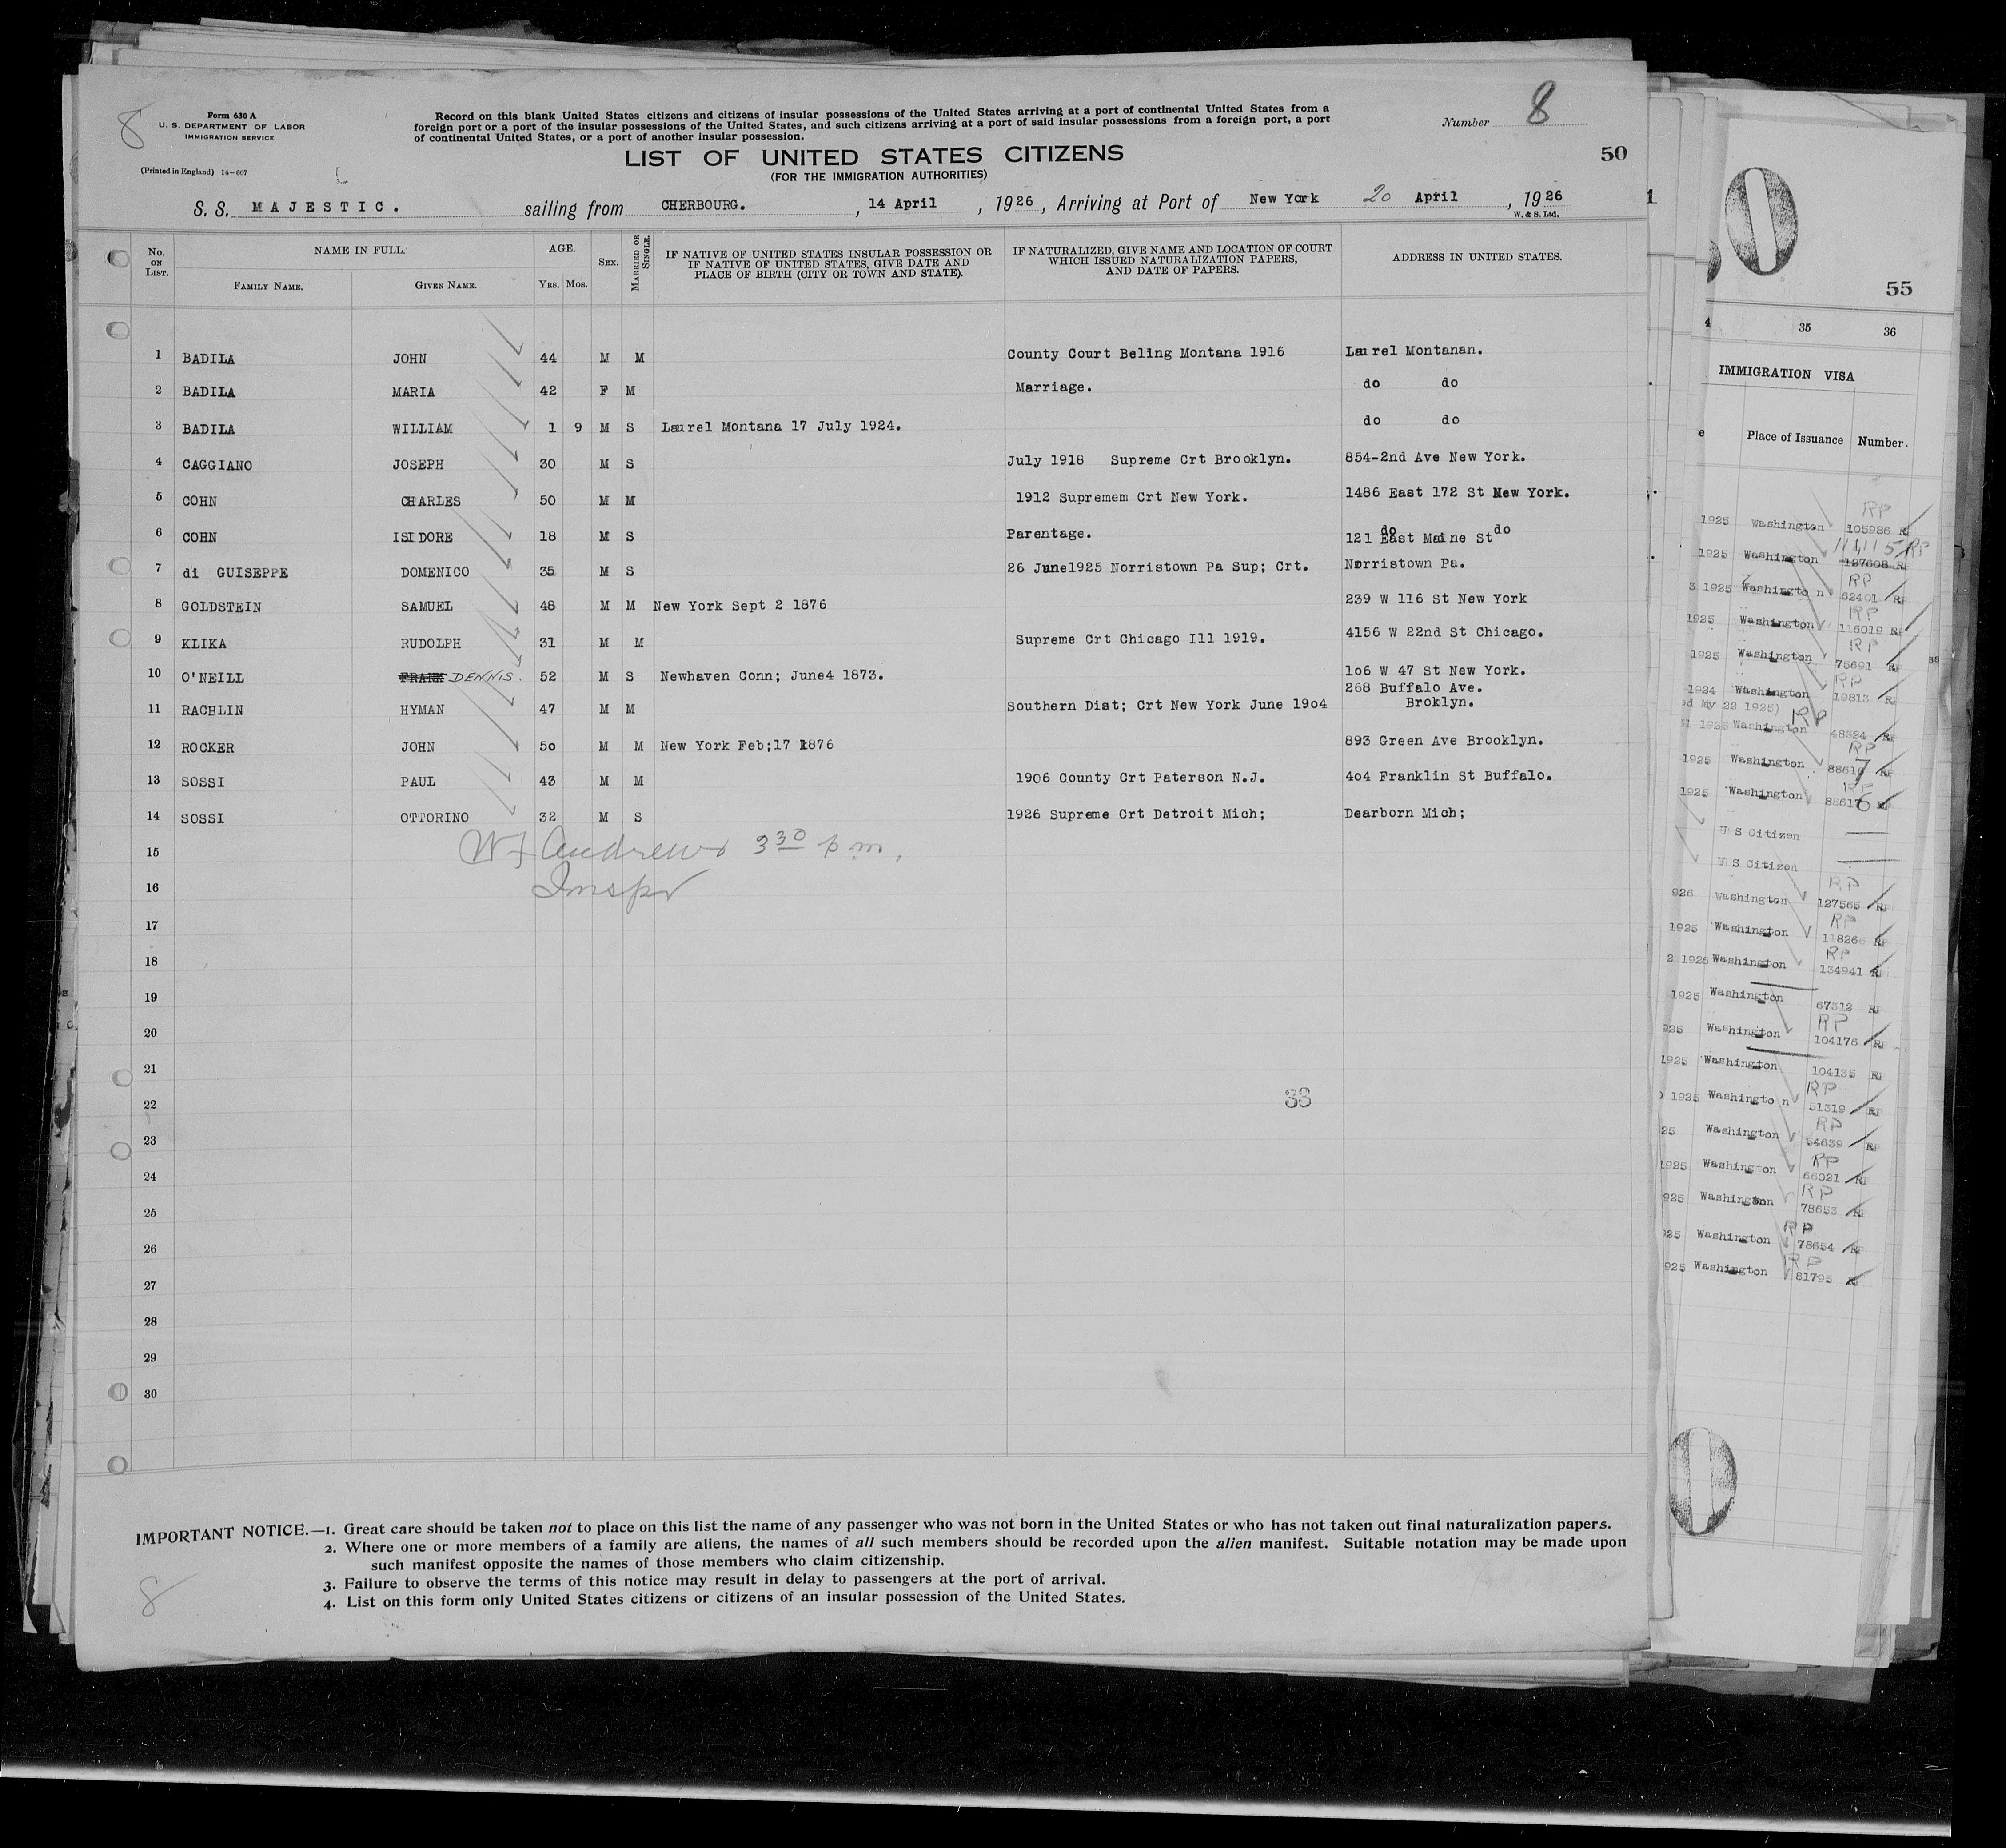 8
Form 630 A
U. S. DEPARTMENT OF LABOR
IMMIGRATION SERVICE
(Printed in England) 14-607
Record on this blank United States citizens and citizens of insular possessions of the United States arriving at a port of continental United States from a
foreign port or a port of the insular possessions of the United States, and such citizens arriving at a port of said insular possessions from a foreign port, a port
of continental United States, or a port of another insular possession.
Number 8
LIST OF UNITED STATES CITIZENS
50
(FOR THE IMMIGRATION AUTHORITIES)
S. S. MAJESTIC. sailing from CHERBOURG. , 14 April , 1926, Arriving at Port of New York 20 April , 1926
W. & S. Ltd.
No. ON LIST. NAME IN FULL. AGE. SEX. MARRIED OR SINGLE. IF NATIVE OF UNITED STATES INSULAR POSSESSION OR IF NATIVE OF UNITED STATES, GIVE DATE AND PLACE OF BIRTH (CITY OR TOWN AND STATE). IF NATURALIZED, GIVE NAME AND LOCATION OF COURT WHICH ISSUED NATURALIZATION PAPERS, AND DATE OF PAPERS. ADDRESS IN UNITED STATES.
FAMILY NAME. GIVEN NAME. YRS. MOS.
1 BADILA JOHN 44 M M County Court Beling Montana 1916 Laurel Montanan.
2 BADILA MARIA 42 F M Marriage. do do
3 BADILA WILLIAM 1 9 M S Laurel Montana 17 July 1924. do do
4 CAGGIANO JOSEPH 30 M S July 1918 Supreme Crt Brooklyn. 854-2nd Ave New York.
5 COHN CHARLES 50 M M 1912 Supremem Crt New York. 1486 East 172 St New York.
6 COHN ISIDORE 18 M S Parentage. do do
121 East Maine St
7 di GUISEPPE DOMENICO 35 M S 26 June1925 Norristown Pa Sup; Crt. Norristown Pa.
8 GOLDSTEIN SAMUEL 48 M M New York Sept 2 1876 239 W 116 St New York
9 KLIKA RUDOLPH 31 M M Supreme Crt Chicago Ill 1919. 4156 W 22nd St Chicago.
10 O'NEILL FRANK DENNIS. 52 M S Newhaven Conn; June4 1873. 1o6 W 47 St New York.
268 Buffalo Ave.
11 RACHLIN HYMAN 47 M M Southern Dist; Crt New York June 19o4 Broklyn.
12 ROCKER JOHN 5o M M New York Feb;17 1876 893 Green Ave Brooklyn.
13 SOSSI PAUL 43 M M 1906 County Crt Paterson N.J. 4o4 Franklin St Buffalo.
14 SOSSI OTTORINO 32 M S 1926 Supreme Crt Detroit Mich; Dearborn Mich;
15
W J Andrews 3 30 p m.
16
Inspr
17
18
19
20
21
22
33
23
24
25
26
27
28
29
30
IMPORTANT NOTICE.—1. Great care should be taken not to place on this list the name of any passenger who was not born in the United States or who has not taken out final naturalization papers.
2. Where one or more members of a family are aliens, the names of all such members should be recorded upon the alien manifest. Suitable notation may be made upon
such manifest opposite the names of those members who claim citizenship.
3. Failure to observe the terms of this notice may result in delay to passengers at the port of arrival.
4. List on this form only United States citizens or citizens of an insular possession of the United States.
8
55
35 36
IMMIGRATION VISA
Place of Issuance Number.
RP
1925 Washington 105986 RP
111115 RP
1925 Washington 127608 RP
RP
3 1925 Washington 62401 RP
RP
1925 Washington 116019 RP
RP
1925 Washington 75691 RP
RP
1924 Washington 19813 RP
ed My 22 1925) RP
1925 Washington 48324 RP
RP
1925 Washington 88616 7 RP
1925 Washington 88617 6
U S Citizen
U S Citizen
RP
926 Washington 127565 RP
RP
1925 Washington 118266 RP
RP
2 1926 Washington 134941 RP
1925 Washington 67312 RP
RP
925 Washington 104176 RP
1925 Washington 104135 RP
RP
1925 Washington 51319 RP
RP
25 Washington 54639 RP
RP
1925 Washington 66021 RP
RP
925 Washington 78653 RP
RP
925 Washington 78654 RP
RP
925 Washington 81795